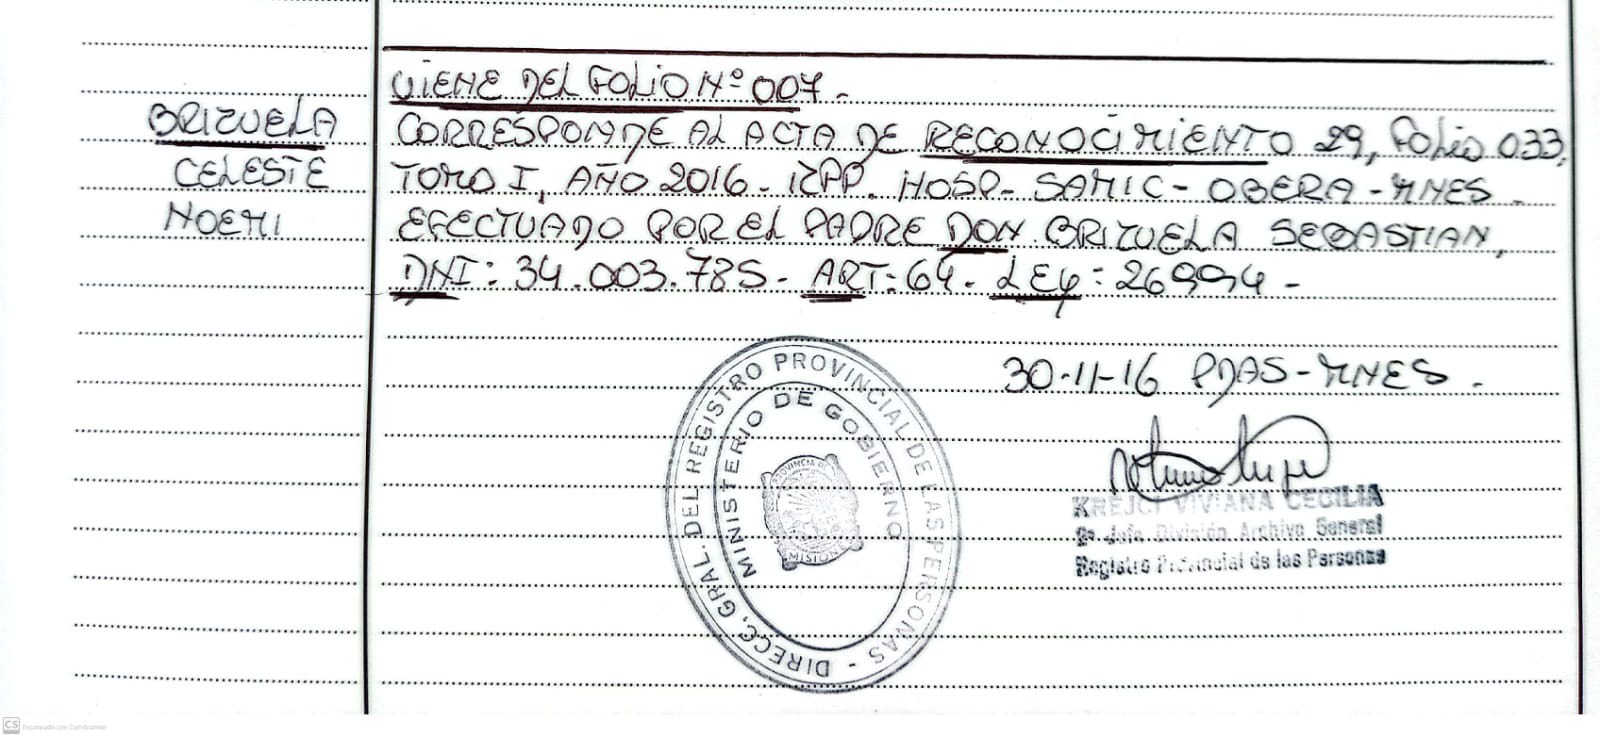 VIENE DEL FOLIO Nº 007.-
BRIZUELA
CELESTE
NOEMI
CORRESPONDE AL ACTA DE RECONOCIMIENTO 29, Folio 033,
TOMO I, AÑO 2016- RPP. HOSP- SAMIC- OBERA - MNES.
EFECTUADO POR EL PADRE DON BRIZUELA SEBASTIAN,
DNI: 34.003.785- ART: 64. LEY: 26994-
30-11-16 PDAS-MNES.
DIRECC. GRAL. DEL REGISTRO PROVINCIAL DE LAS PERSONAS -
MINISTERIO DE GOBIERNO
PROVINCIA DE
MISIONES
KREJCI VIVIANA CECILIA
2º Jefe División Archivo General
Registro Provincial de las Personas
CS Escaneado con CamScanner